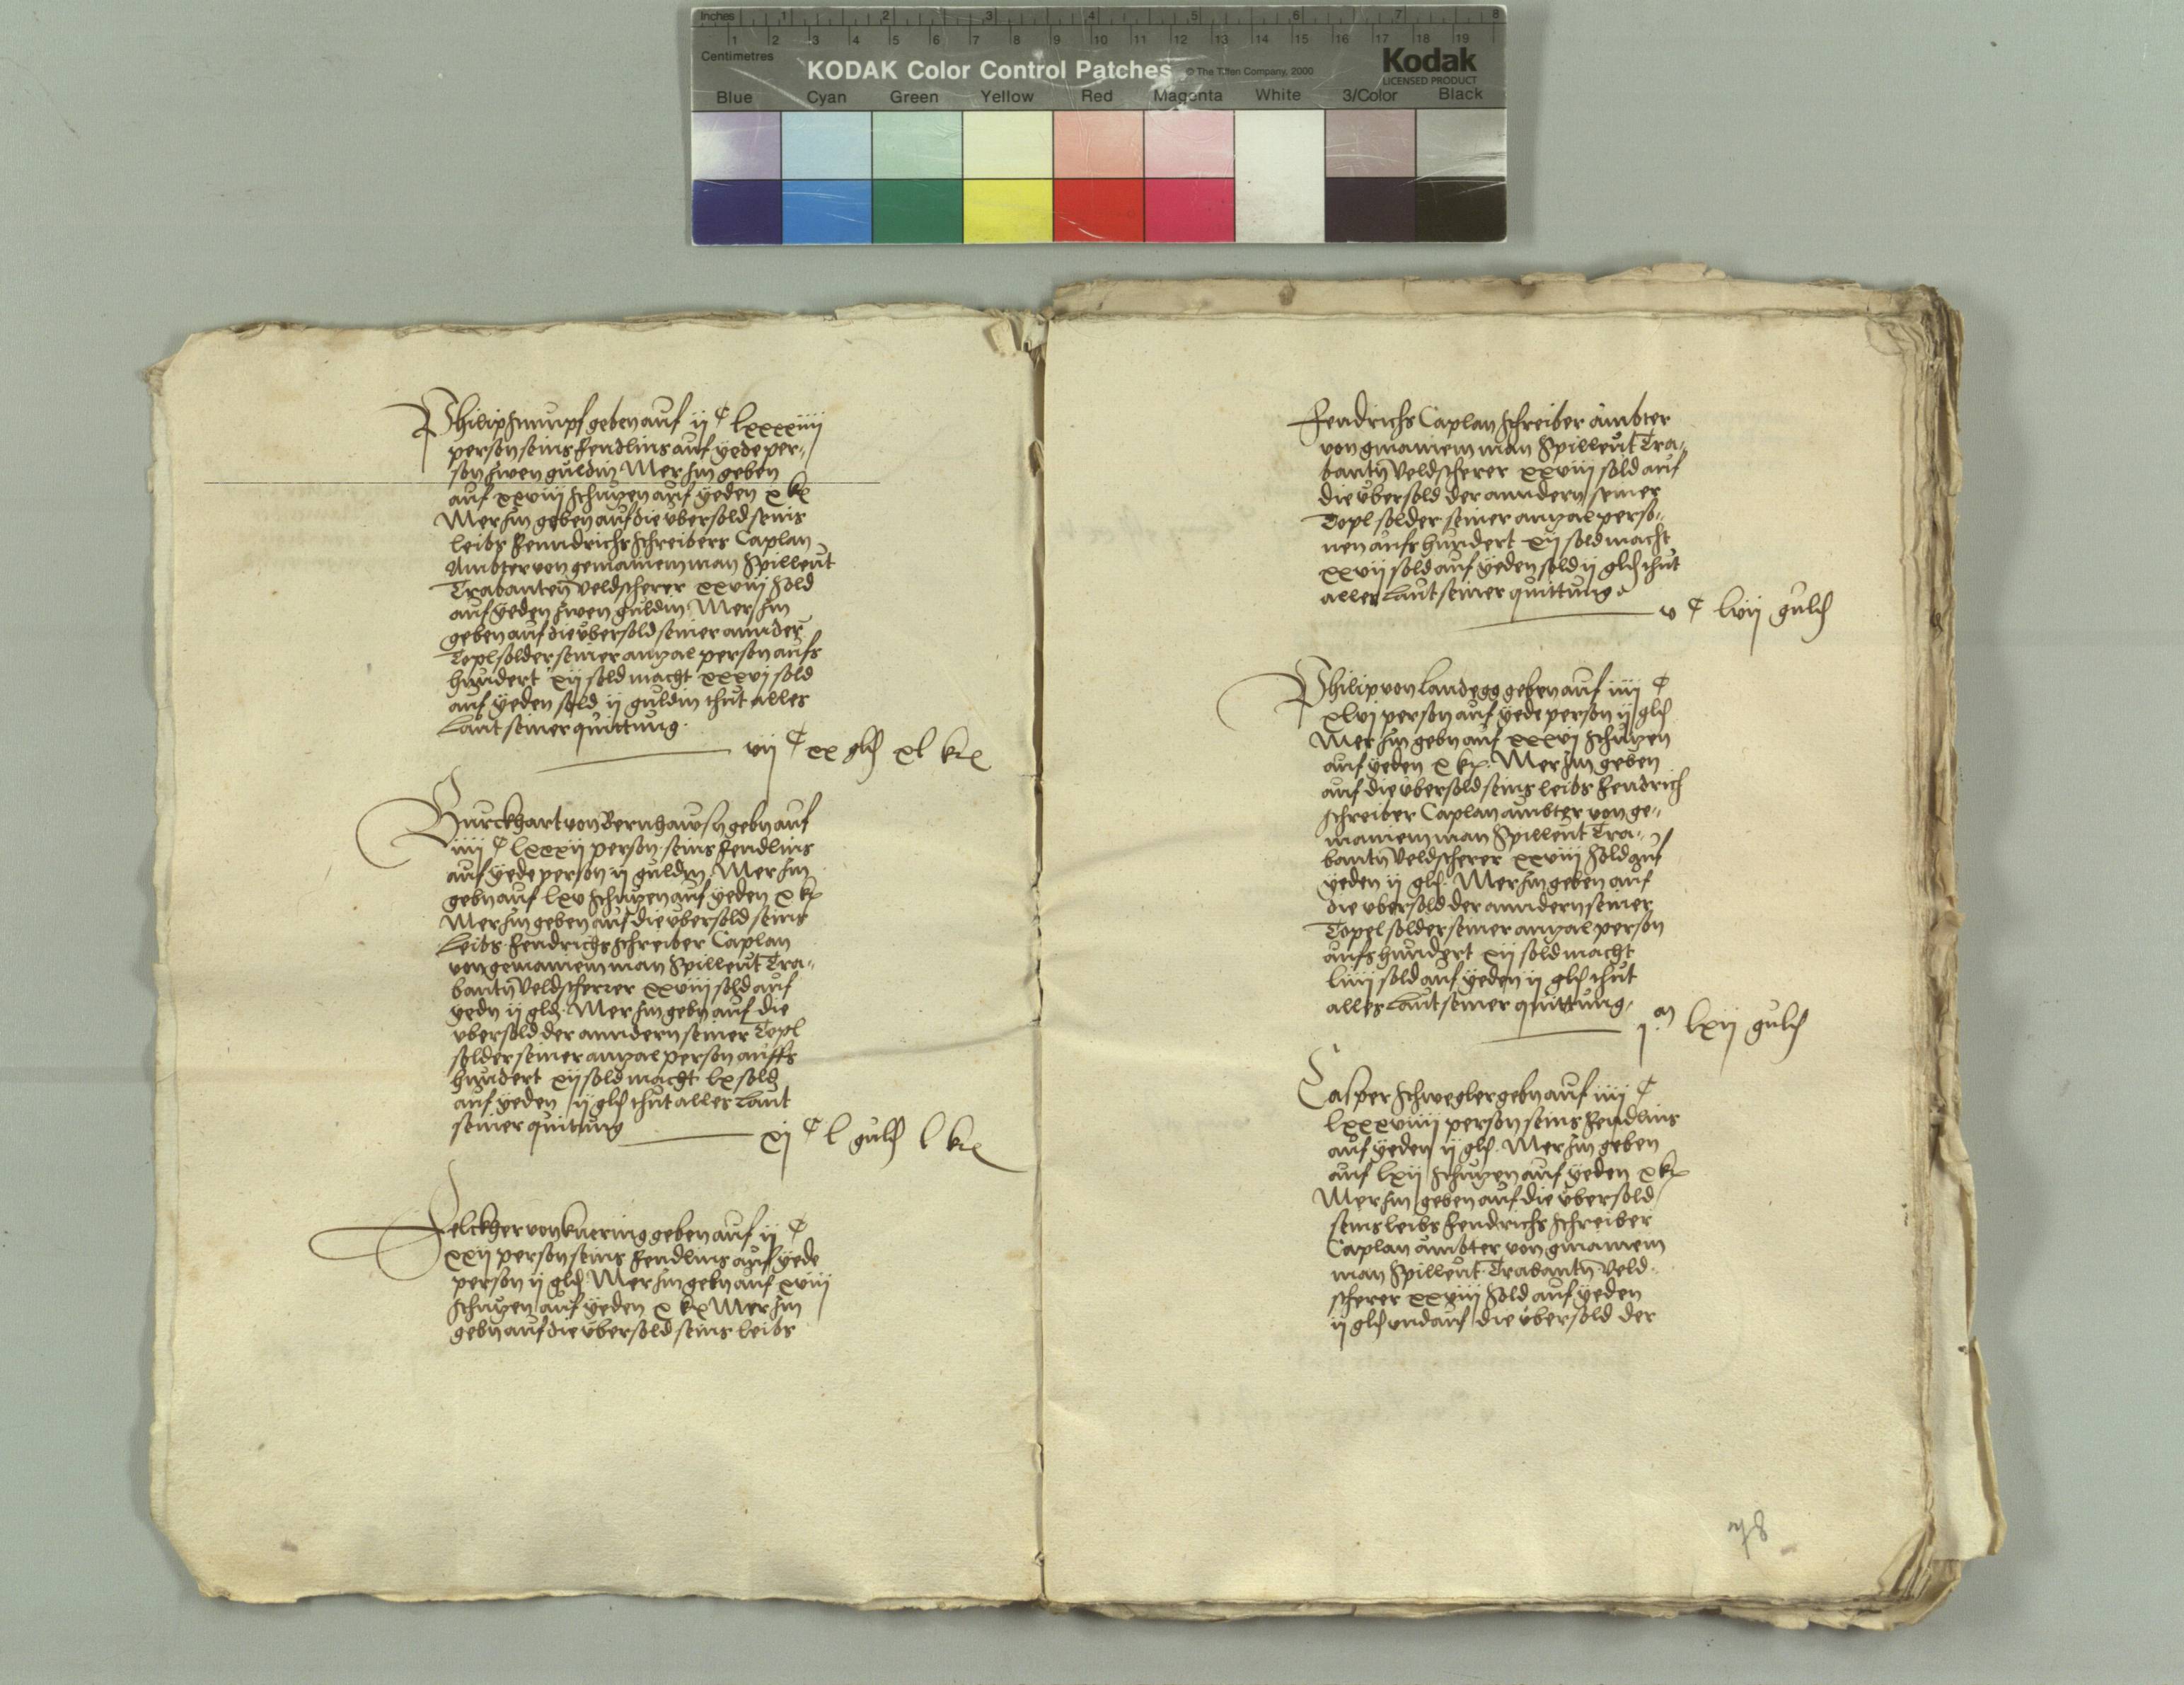 Inches 1 2 3 4 5 6 7 8
1 2 3 4 5 6 7 8 9 10 11 12 13 14 15 16 17 18 19
Centimetres
KODAK Color Control Patches © The Tiffen Company, 2000 Kodak
LICENSED PRODUCT
Blue Cyan Green Yellow Red Magenta White 3/Color Black
Philip Stumpf geben auf ij C lxxxxiiij
person seins Fendlins auf yede per-
son zwen guldin Mer Im geben
auf xxviij schutzen auf yeden x kr
Mer Im geben auf die übersold seins
leibs Fenndrichs Schreibers Caplan
Ambter von gemainem man Spilleut
Trabanten Veldscherer xxviij Sold
auf yeden zwen guldin Mer Im
geben auf die übersold seiner annder
Toplsolder seiner anzal person aufs
hundert xij sold macht xxxvj sold
auf yeden sold ij guldin thut alles
Laut seiner quittung.
vij C xx gld xl kr
Burckhart von Bernhausn gebn auf
iiij C lxxxij person seins Fendlins
auf yede person ij guldin Mer Im
gebn auf lxv Schutzen auf yeden x kr
Mer Im geben auf die übersold seins
Leibs Fendrichs Schreiber Caplan
von gemainem man Spilleut Tra-
bantn Veldscherer xxviij sold auf
yedn ij gld. Mer Im gebn auf die
übersold der anndern seiner Topl
solder seiner anzal person auffs
hundert xij sold macht lx sold
auf yeden ij gld thut alles Laut
seiner quitung
xj C l guld l kr
von Knering geben auf ij C
xxij person seins Fendlins auf yede
person ij gld. Mer Im gebn auf xviij
Schutzen auf yeden x kr Mer Im
gebn auf die übersold seins leibs
Fendrichs Caplan Schreiber ambter
von gmainem man Spilleut Tra-
bantn Veldscherer xxviij sold auf
die übersold der anndern seiner
Topl solder seiner anzal perso-
nen aufs hundert xij sold macht
xxvij sold auf yeden sold ij gld thut
alles Laut seiner quittung
v C lvij guld
Philip von Landegg geben auf iiij C
xlvj person auf yede person ij gld
Mer Im gebn auf xxxvj Schutzen
auf yeden x kr. Mer Im geben
auf die übersold seins leibs Fendrich
Schreiber Caplan ambter von ge-
mainem man Spilleut Tra-
bantn Veldscherer xxviij Sold auf
yeden ij gld. Mer Im geben auf
die übersold der anndern seiner
Topel solder seiner anzal person
aufs hundert xij sold macht
liiij sold auf yeden ij gld thut
alles Laut seiner quittung.
j m lxij guld
Casper Schwegler gebn auf iiij C
lxxxviiij person seins Fendlins
auf yeden ij gld. Mer Im geben
auf lxij Schutzen auf yeden x kr
Mer Im geben auf die übersold
seins leibs Fendrichs Schreiber
Caplan ambter von gmainem
man Spilleut Trabantn Veld-
scherer xxviij Sold auf yeden
ij gld und auf die übersold der
78